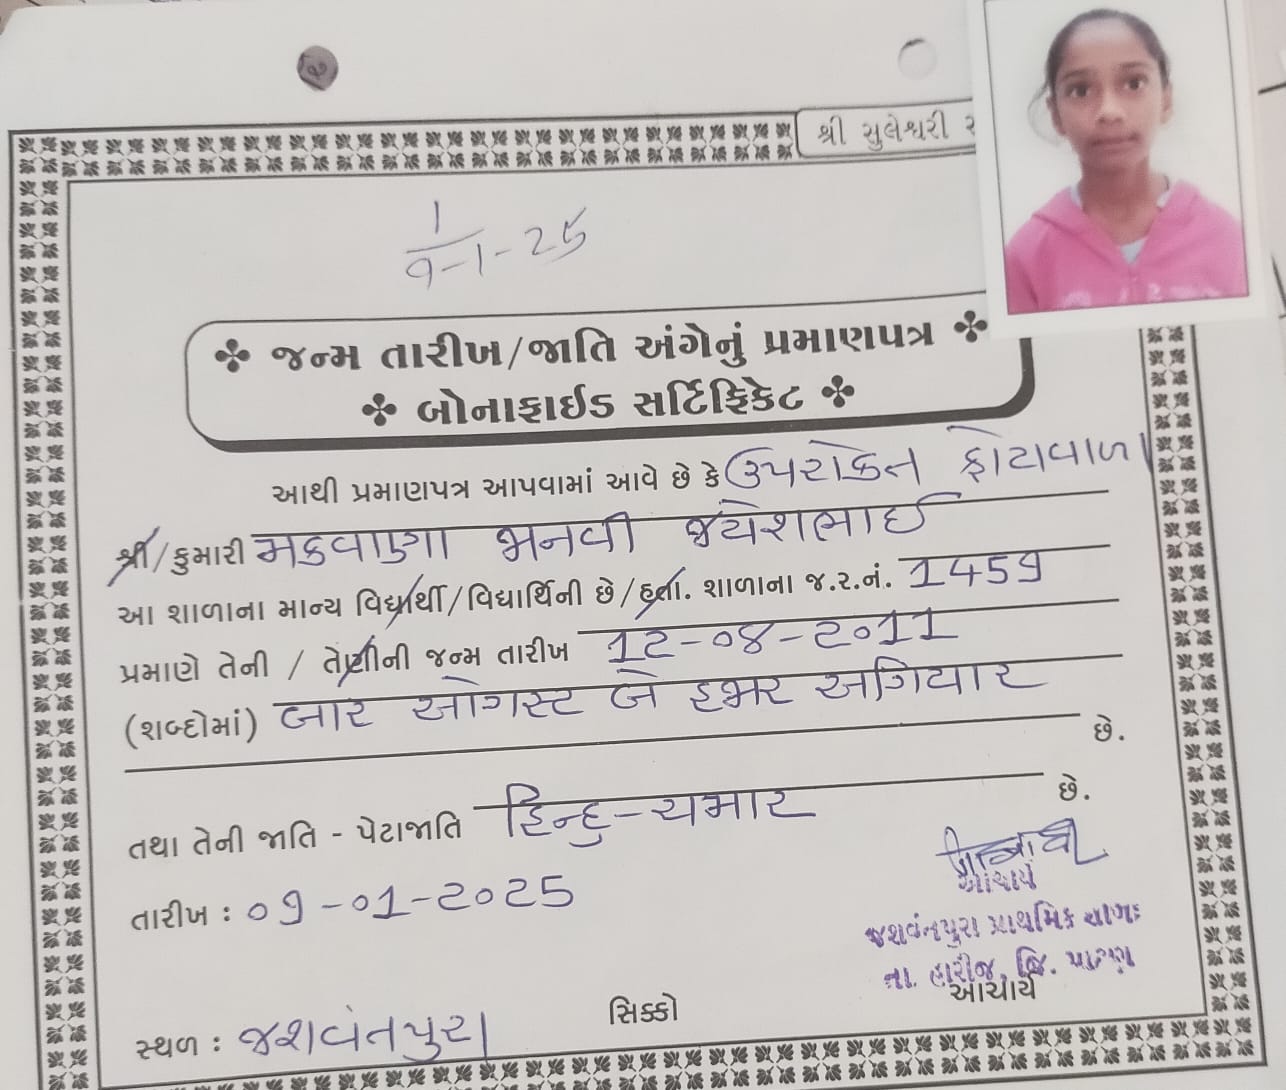 શ્રી સુલેશ્વરી
1
9-1-25
જન્મ તારીખ/જાતિ અંગેનું પ્રમાણપત્ર
બોનાફાઈડ સર્ટિફિકેટ
આથી પ્રમાણપત્ર આપવામાં આવે છે કે ઉપરોક્ત ફોટાવાળા
શ્રી/કુમારી મકવાણા જાનવી જયેશભાઈ
આ શાળાના માન્ય વિદ્યાર્થી/વિદ્યાર્થિની છે/હતા. શાળાના જ.ર.નં. 1459
પ્રમાણે તેની / તેણીની જન્મ તારીખ 12-08-2011
(શબ્દોમાં) બાર ઓગસ્ટ બે હજાર અગિયાર
છે.
તથા તેની જાતિ - પેટાજાતિ હિન્દુ-ચમાર છે.
તારીખ : 09-01-2025
આચાર્ય
જશવંતપુરા પ્રાથમિક શાળા
તા. હારીજ, જિ. પાટણ
સિક્કો આચાર્ય
સ્થળ : જશવંતપુરા